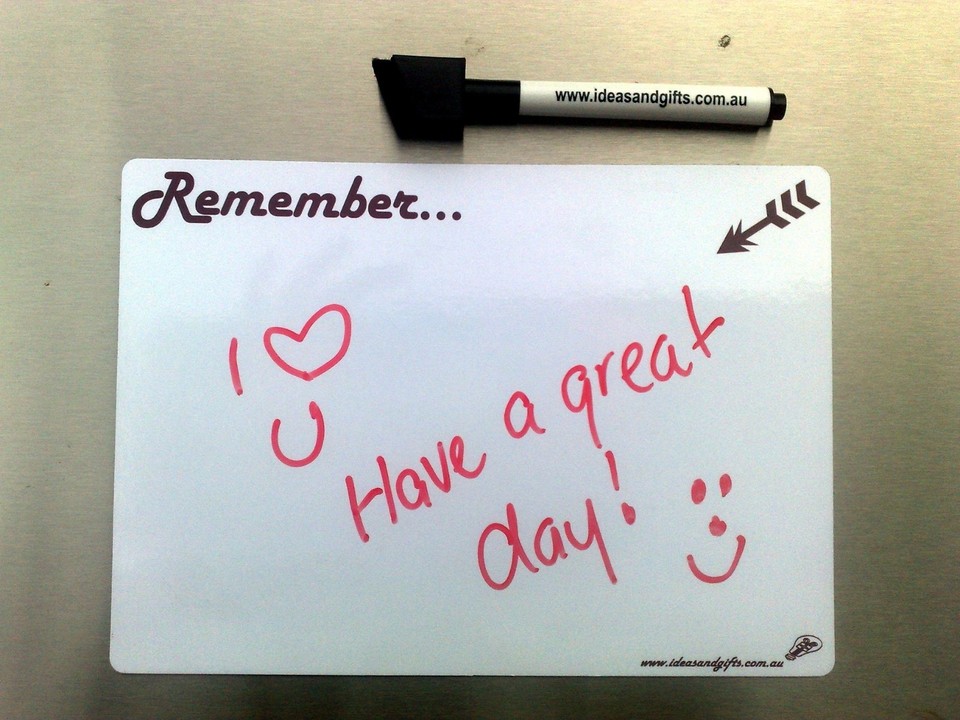 www.ideasandgifts.com.au
Remember...
I ♡
U
Have a great
day!
www.ideasandgifts.com.au